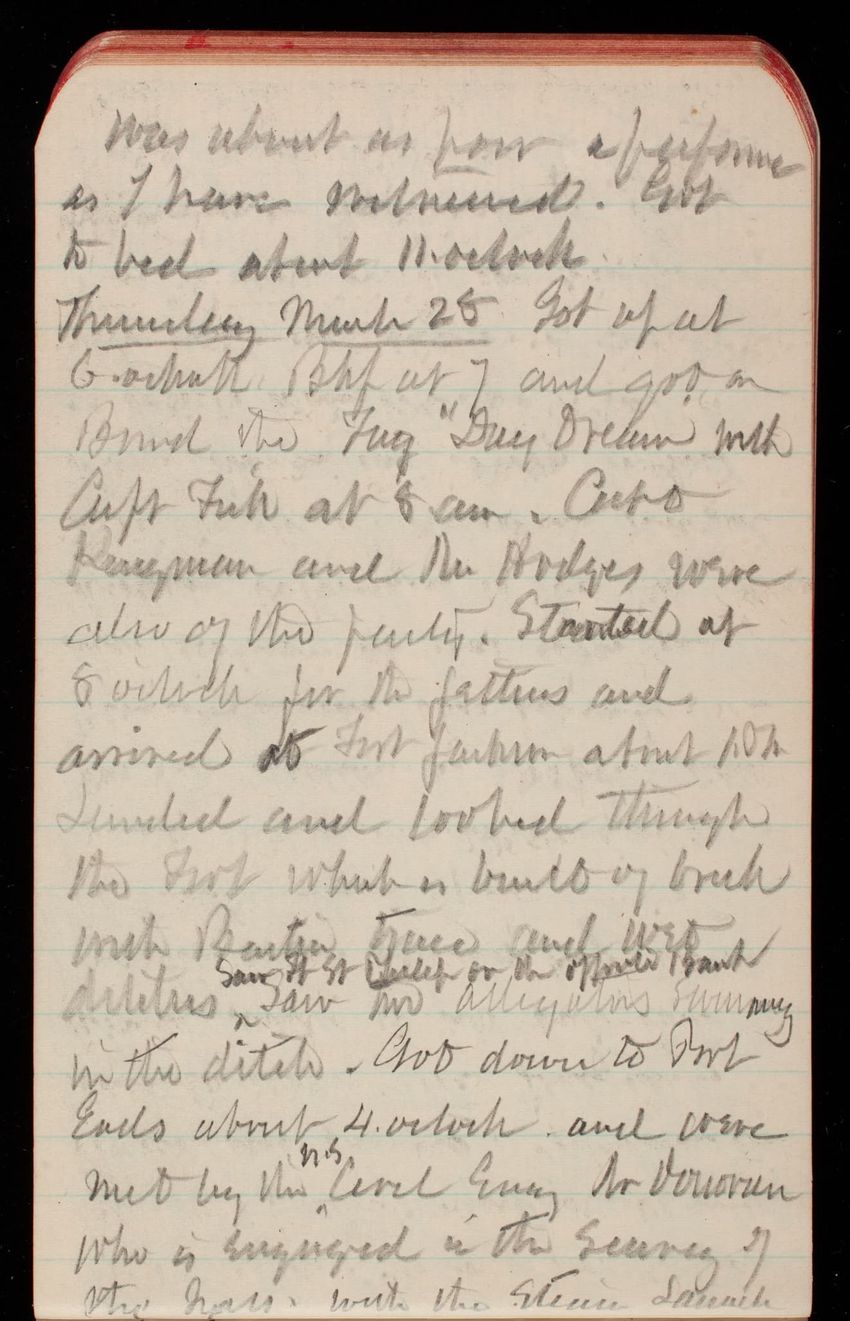 was about as poor a performance
as I have witnessed. Got
to bed about 11.oclock.
Thursday March 28 Got up at
6.oclock Bkf at 7 and got on
Board the Tug "Day Dream" with
Capt at 8 am. Capt
Kingman and Mr Hodges were
also of the party. Started at
8 oclock for the jetties and
arrived at Fort Jackson about
Landed and looked through
the Fort which is built of brick
with Bastion trace and wet
Saw Ft St Philip on the opposite Bank
ditches. Saw two alligators swimming
in the ditch. Got down to Port
Eads about 4.oclock. and were
met by the U.S. Civil Eng Mr Donovan
who is engaged in the Survey of
the Pass. with the Steam Launch